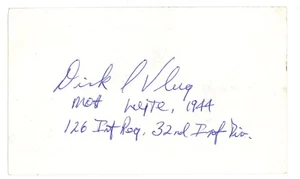 Dirk J Vlug
MOH Leyte, 1944
126 Inf Reg, 32nd Inf Div.